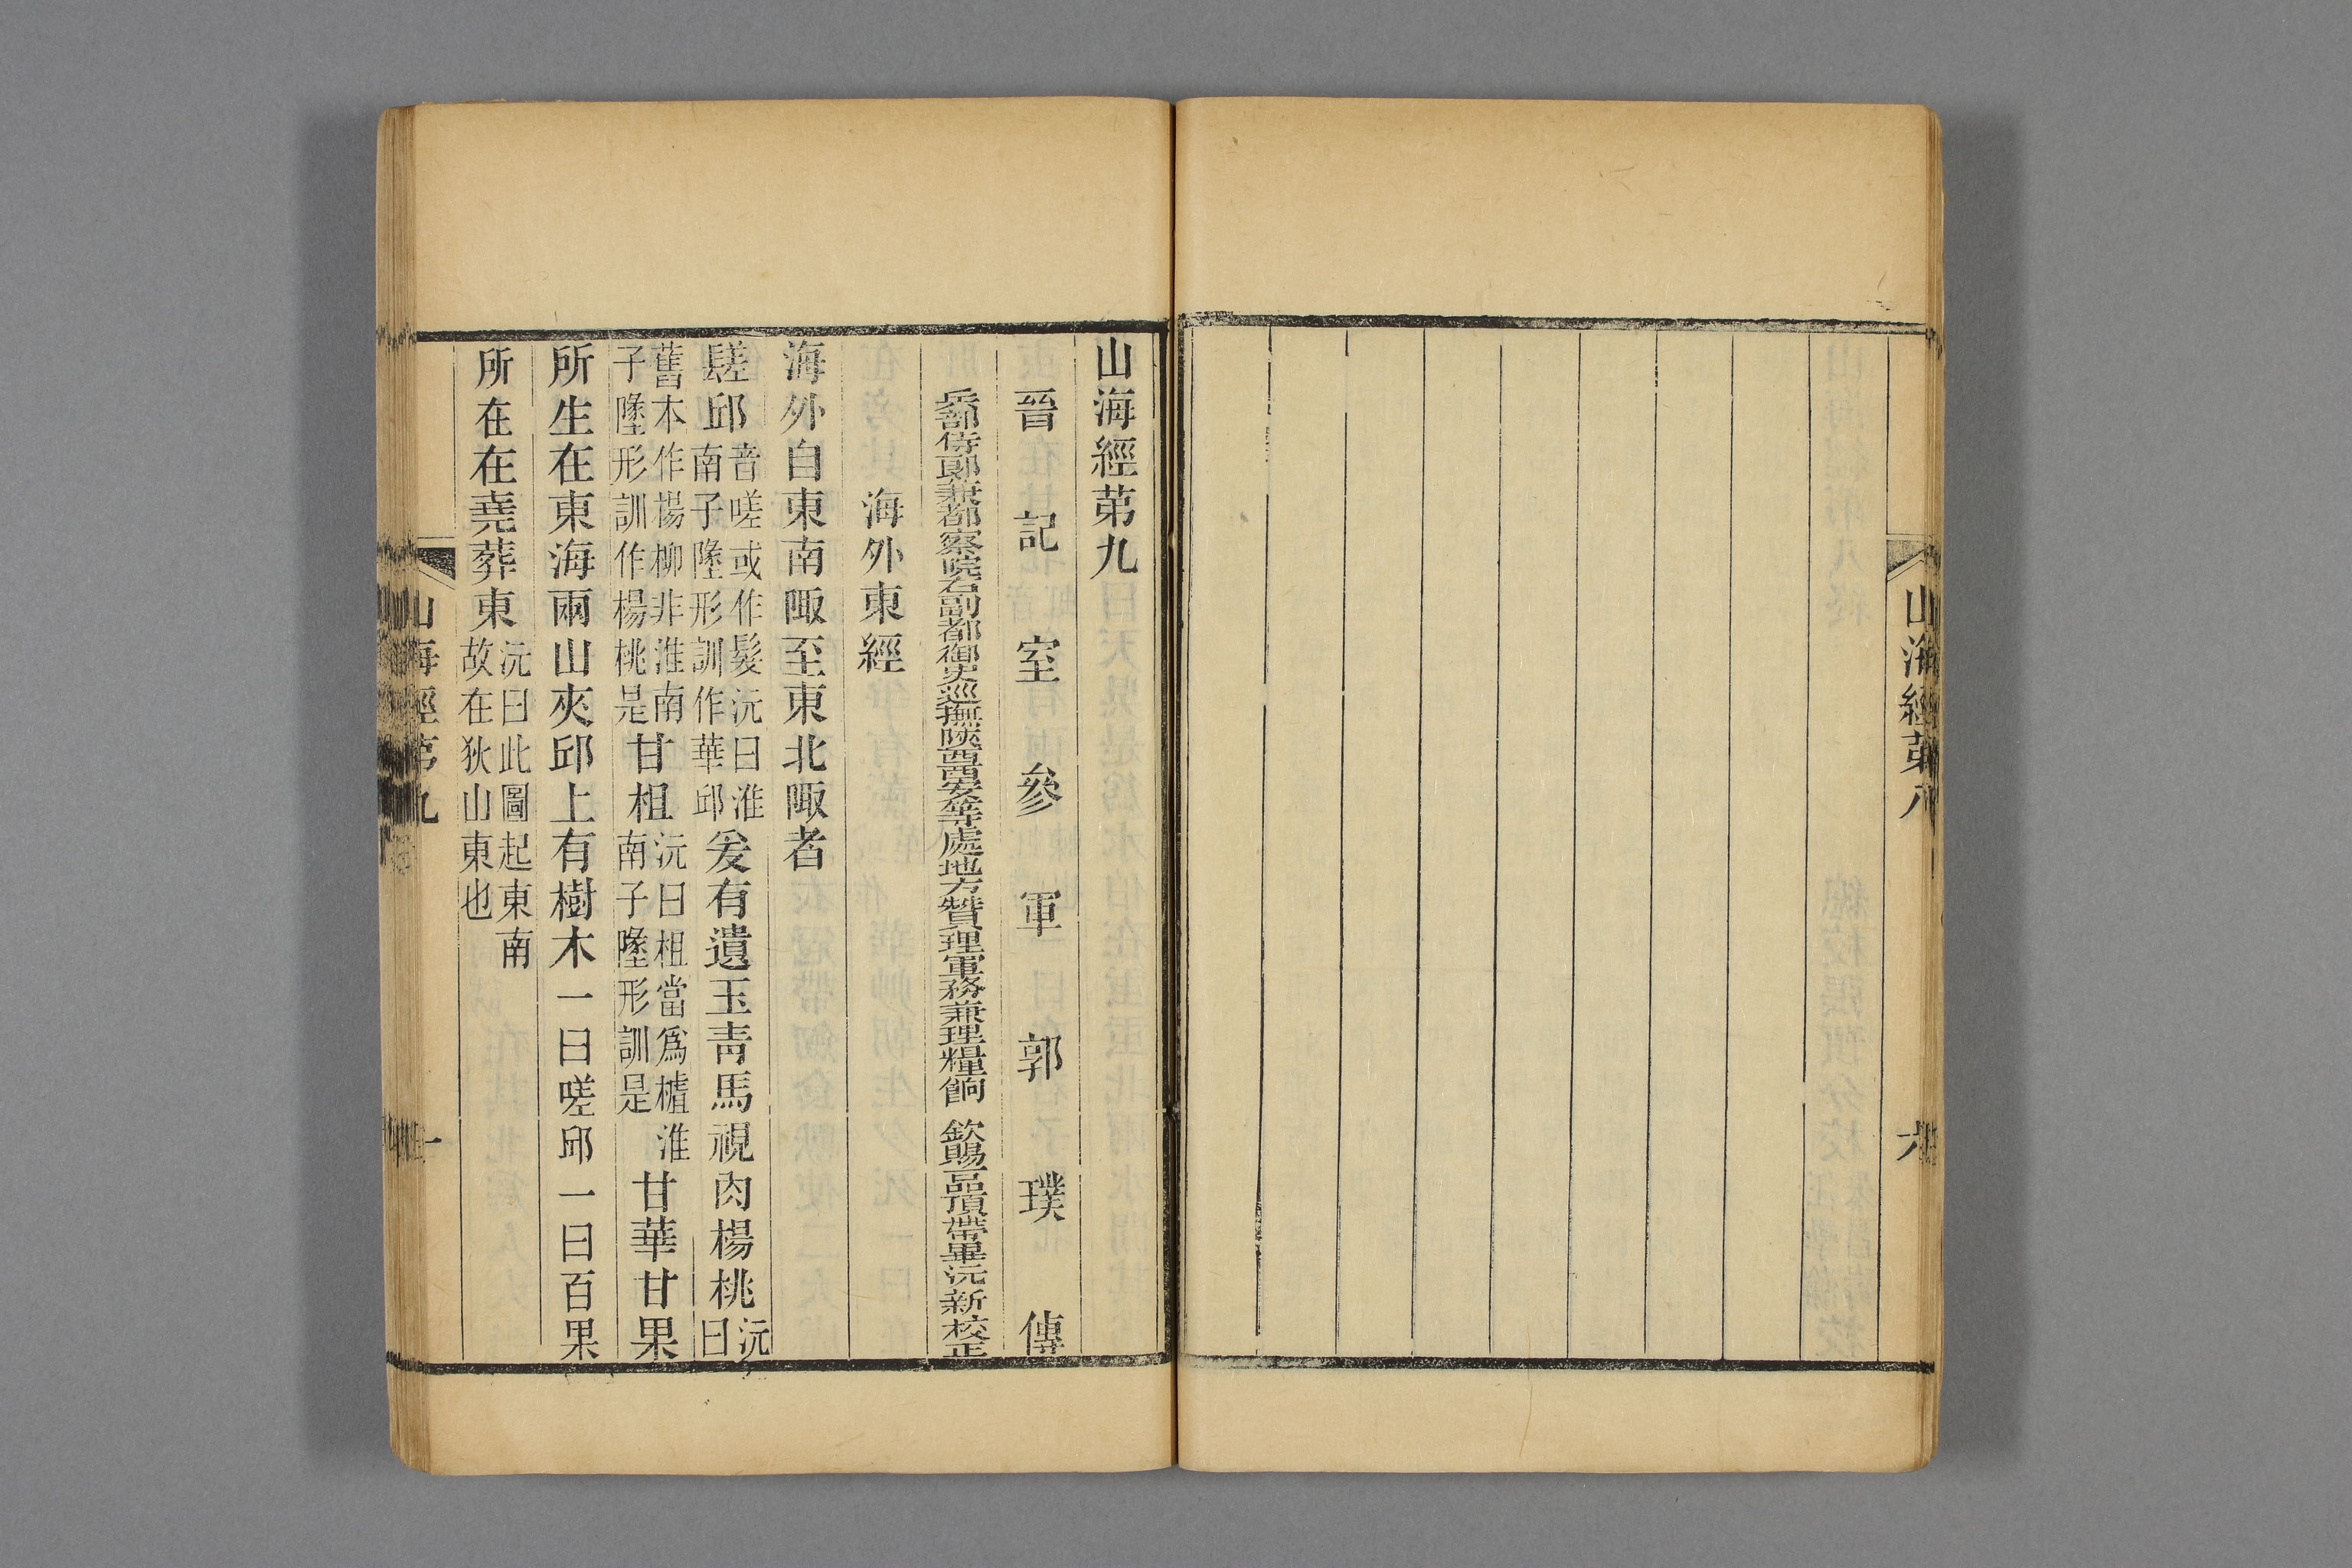 山海經第八
六
山海經第九
晉記室參軍郭璞傳
兵部侍郞兼都察院右副都御史巡撫陝西西安等處地方贊理軍務兼理糧餉 欽賜一品頂帶畢沅新校正
海外東經
海外自東南陬至東北陬者
𨲠邱音嗟或作髮沅曰淮南子墬形訓作華邱爰有遺玉靑馬視肉楊桃沅曰
舊本作楊柳非淮南子墬形訓作楊桃是甘柤沅曰柤當爲樝淮南子墬形訓是甘華甘果
所生在東海兩山夾邱上有樹木一曰嗟邱一曰百果
所在在堯葬東沅曰此圖起東南故在狄山東也
山海經第九
一